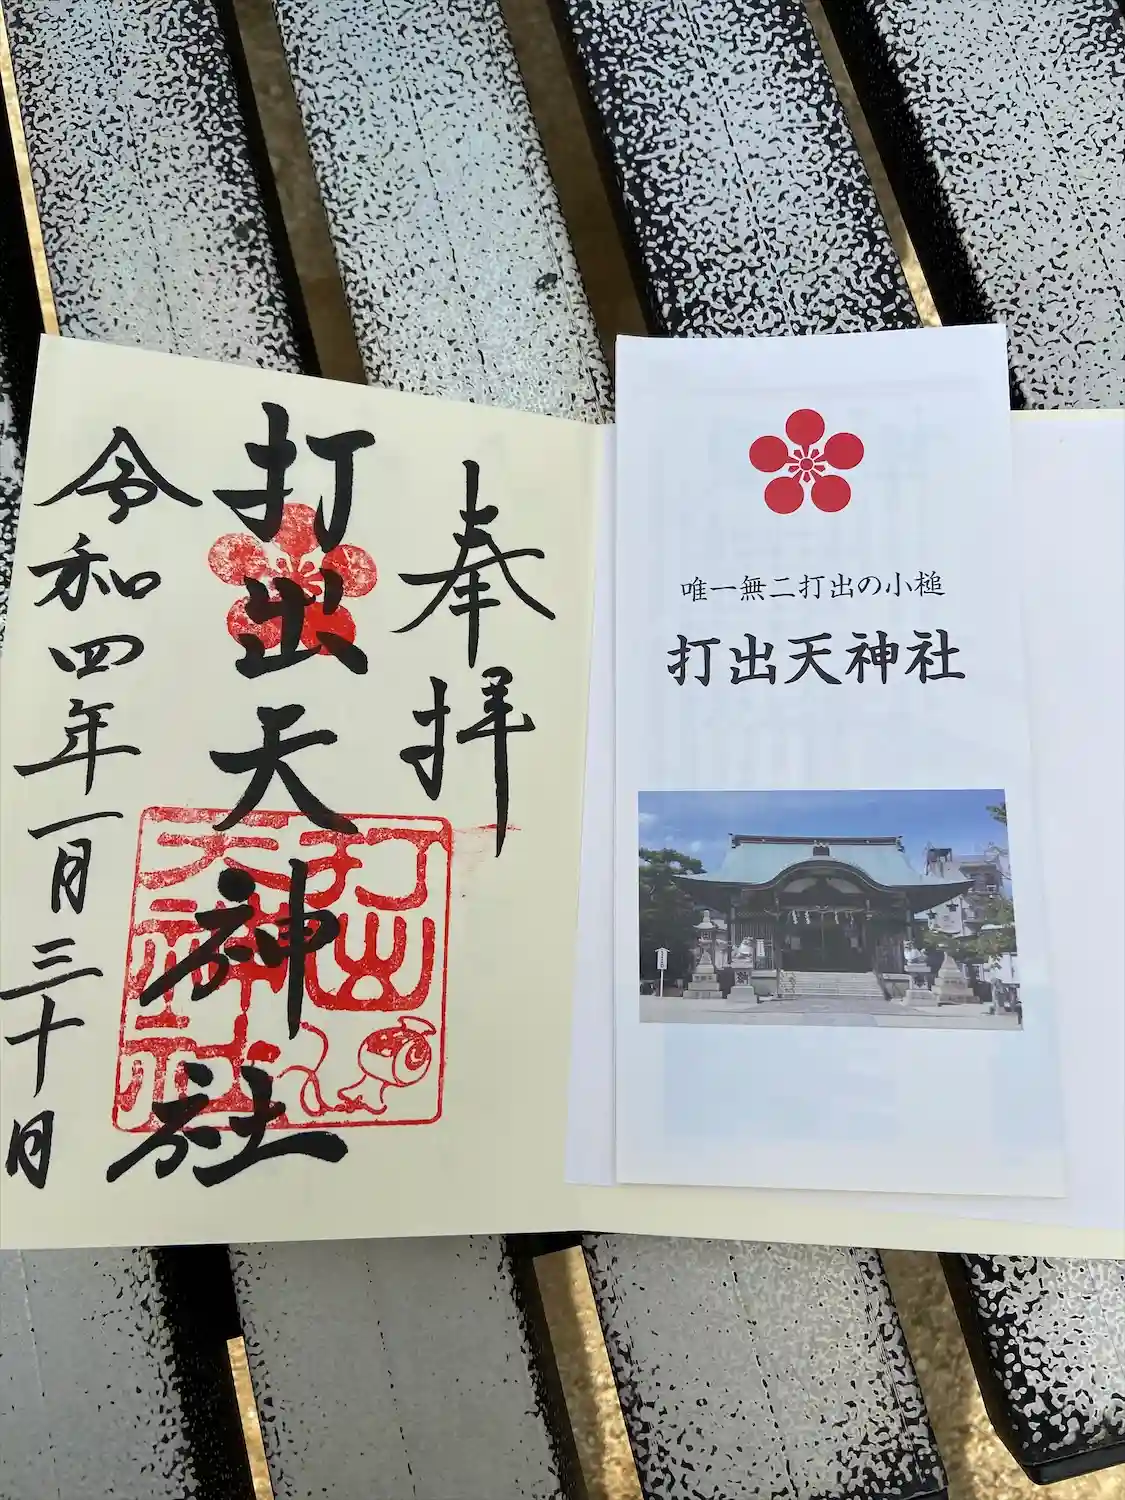 奉拝
打出天神社
令和四年一月三十日
打出
天神社
唯一無二打出の小槌
打出天神社